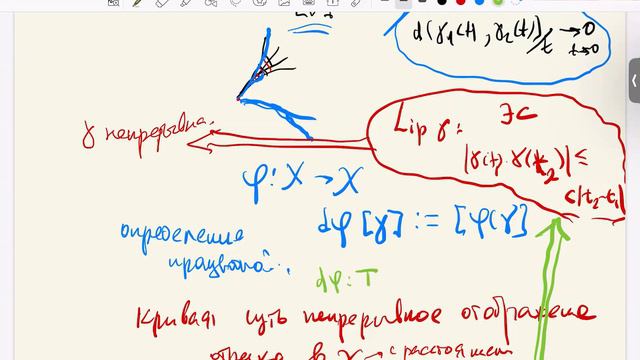 d(γ₁(t), γ₂(t))/t → 0
t→0
Lip γ: ∃c
γ непрерывна.
|γ(t₁) γ(t₂)| ≤
c|t₂-t₁|
φ: X → X
dφ [γ] := [φ(γ)]
определение
dφ: T
Кривая путь непрерывное отображение
отрезка в X → с расстоянием